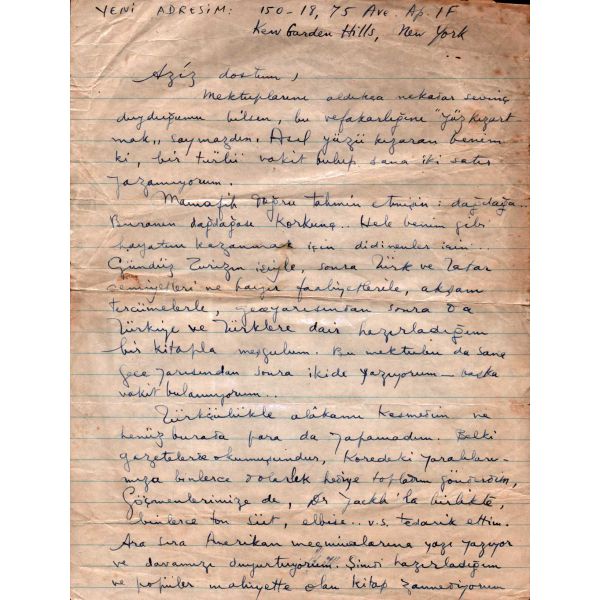 YENİ ADRESİM: 150-18, 75 Ave. Ap. 1F
Kew Garden Hills, New York
Aziz dostum,
Mektuplarını aldıkca nekadar sevinç
duyduğumu bilsen, bu vefakarlığına "yüz kızart-
mak" saymazdın. Asıl yüzü kızaran benim
ki, bir türlü vakit bulup sana iki satır
yazamıyorum.
Mamafih doğru tahmin etmişsin: dağdağa..
Buranın dağdağası korkunç.. Hele benim gibi
hayatını kazanmak için didinenler için...
Gündüz Turizm işiyle, sonra Türk ve Tatar
cemiyetleri ve hayır faaliyetlerile, akşam
tercümelerle, geceyarısından sonra da
Türkiye ve Türklere dair hazırladığım
bir kitapla meşgulum. Bu mektubu da sana
gece yarısından sonra ikide yazıyorum — başka
vakit bulamıyorum...
Türkçülükle alâkamı kesmedim ve
henüz burada para da yapamadım. Belki
gazetelerde okumuşsundur, Koredeki yaralıları-
mıza binlerce dolarlık hediye toplatıp gönderdim,
Göçmenlerimize de, Dr Jackh'la birlikte,
binlerce ton süt, elbise.. v.s. tedarik ettim.
Ara sıra Amerikan mecmualarına yazı yazıyor
ve davamızı duyurtuyorum. Şimdi hazırladığım
ve popüler mahiyette olan kitap zannediyorum